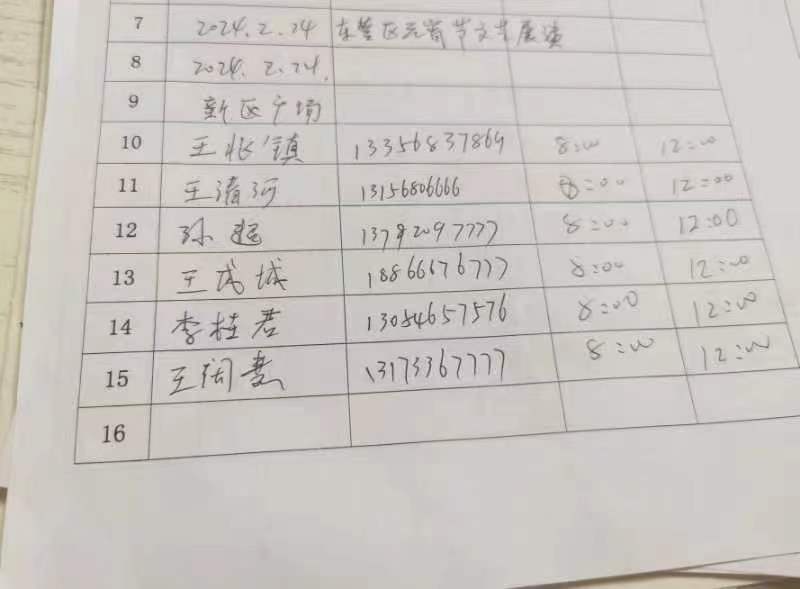 7 2024.2.24 东营区元宵节文艺展演
8 2024.2.24.
9 新区广场
10 王 镇 13356837864 8:00 12:00
11 王清河 13156806666 8:00 12:00
12 孙 13792097777 8:00 12:00
13 王成城 18866676777 8:00 12:00
14 李桂君 13054657576 8:00 12:00
15 王 13173367777 8:00 12:00
16